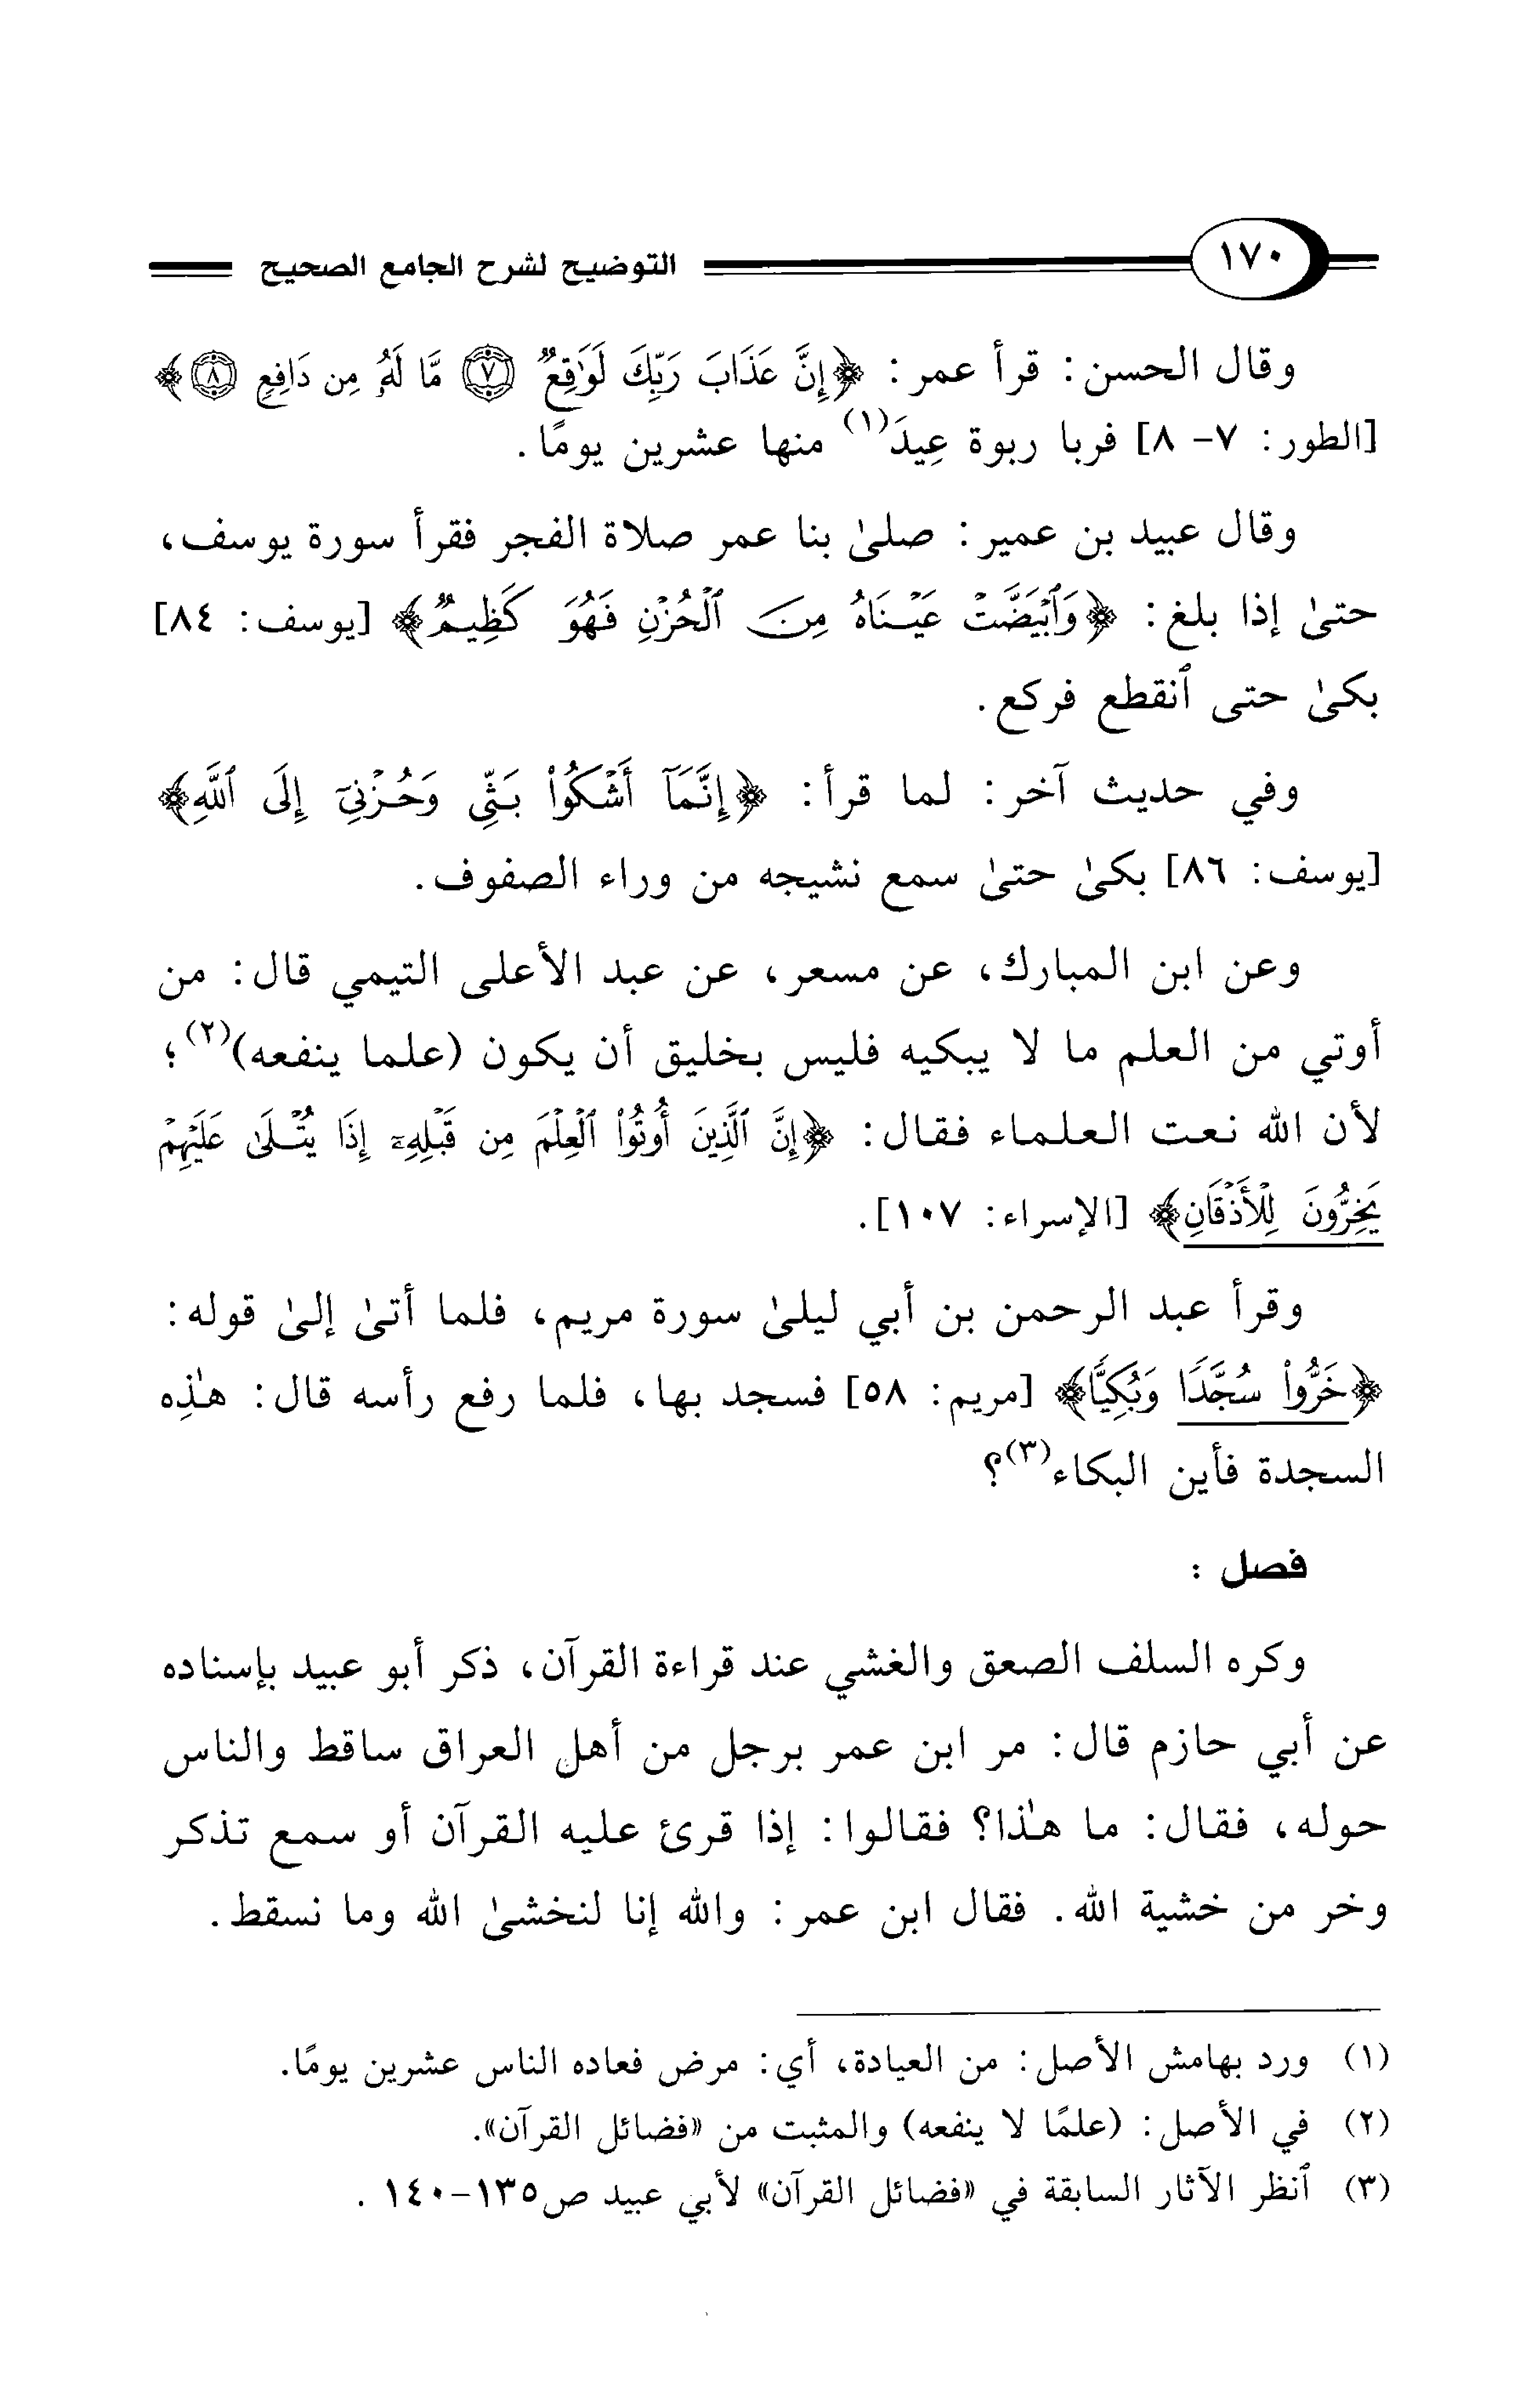 ١٧٠ التوضيح لشرح الجامع الصحيح
وقال الحسن: قرأ عمر: ﴿إِنَّ عَذَابَ رَبِّكَ لَوَٰقِعٌ ٧ مَّا لَهُۥ مِن دَافِعٍ ٨﴾
[الطور: ٧- ٨] فربا ربوة عِيدَ(١) منها عشرين يومًا.
وقال عبيد بن عمير: صلىٰ بنا عمر صلاة الفجر فقرأ سورة يوسف،
حتىٰ إذا بلغ: ﴿وَٱبْيَضَّتْ عَيْنَاهُ مِنَ ٱلْحُزْنِ فَهُوَ كَظِيمٌ﴾ [يوسف: ٨٤]
بكىٰ حتى ٱنقطع فركع.
وفي حديث آخر: لما قرأ: ﴿إِنَّمَآ أَشْكُوا۟ بَثِّى وَحُزْنِىٓ إِلَى ٱللَّهِ﴾
[يوسف: ٨٦] بكىٰ حتىٰ سمع نشيجه من وراء الصفوف.
وعن ابن المبارك، عن مسعر، عن عبد الأعلى التيمي قال: من
أوتي من العلم ما لا يبكيه فليس بخليق أن يكون (علما ينفعه)(٢)؛
لأن الله نعت العلماء فقال: ﴿إِنَّ ٱلَّذِينَ أُوتُوا۟ ٱلْعِلْمَ مِن قَبْلِهِۦٓ إِذَا يُتْلَىٰ عَلَيْهِمْ
يَخِرُّونَ لِلْأَذْقَانِ﴾ [الإسراء: ١٠٧].
وقرأ عبد الرحمن بن أبي ليلىٰ سورة مريم، فلما أتىٰ إلىٰ قوله:
﴿خَرُّوا۟ سُجَّدًا وَبُكِيًّا﴾ [مريم: ٥٨] فسجد بها، فلما رفع رأسه قال: هٰذِه
السجدة فأين البكاء(٣)؟
فصل :
وكره السلف الصعق والغشي عند قراءة القرآن، ذكر أبو عبيد بإسناده
عن أبي حازم قال: مر ابن عمر برجل من أهل العراق ساقط والناس
حوله، فقال: ما هٰذا؟ فقالوا: إذا قرئ عليه القرآن أو سمع تذكر
وخر من خشية الله. فقال ابن عمر: والله إنا لنخشىٰ الله وما نسقط.
(١) ورد بهامش الأصل: من العيادة، أي: مرض فعاده الناس عشرين يومًا.
(٢) في الأصل: (علمًا لا ينفعه) والمثبت من «فضائل القرآن».
(٣) ٱنظر الآثار السابقة في «فضائل القرآن» لأبي عبيد ص١٣٥-١٤٠ .